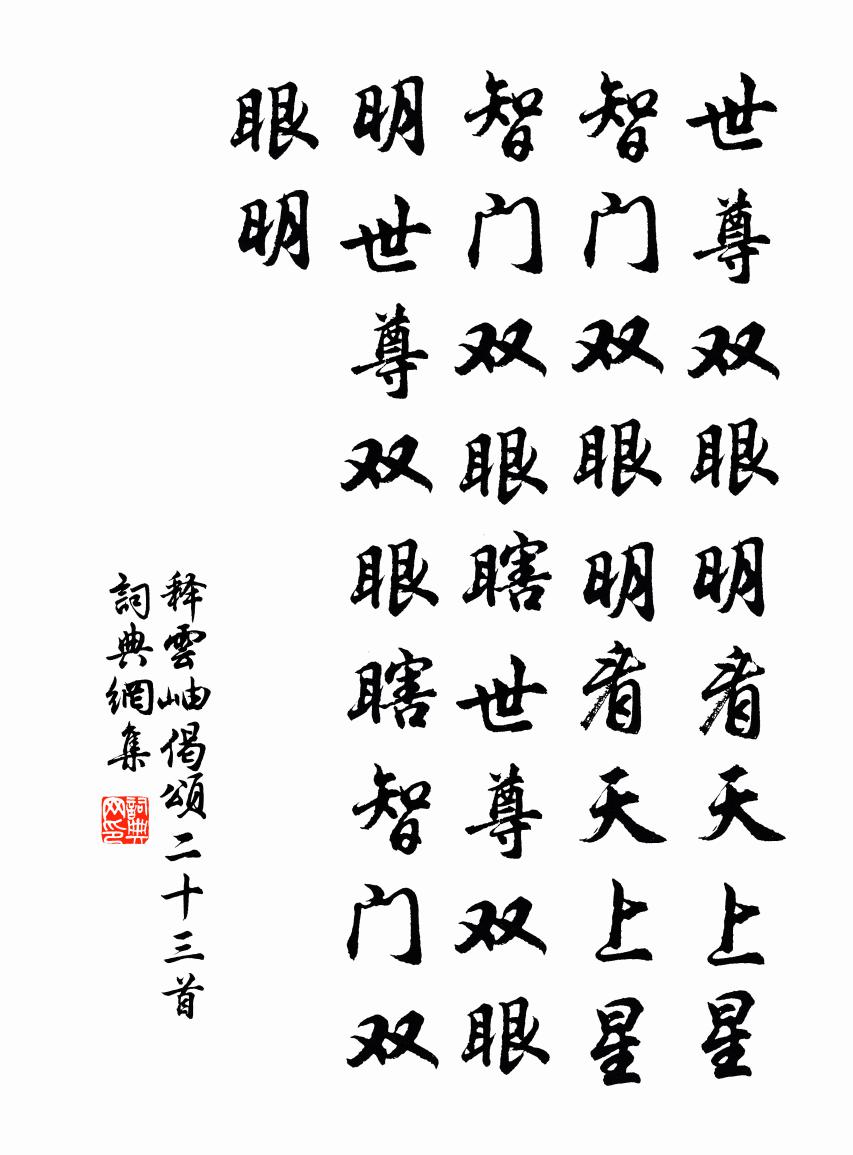 世尊双眼明看天上星
智门双眼明看天上星
智门双眼瞎世尊双眼
明世尊双眼瞎智门双
眼明
释雲岫偈頌二十三首
詞典網集
詞典网印